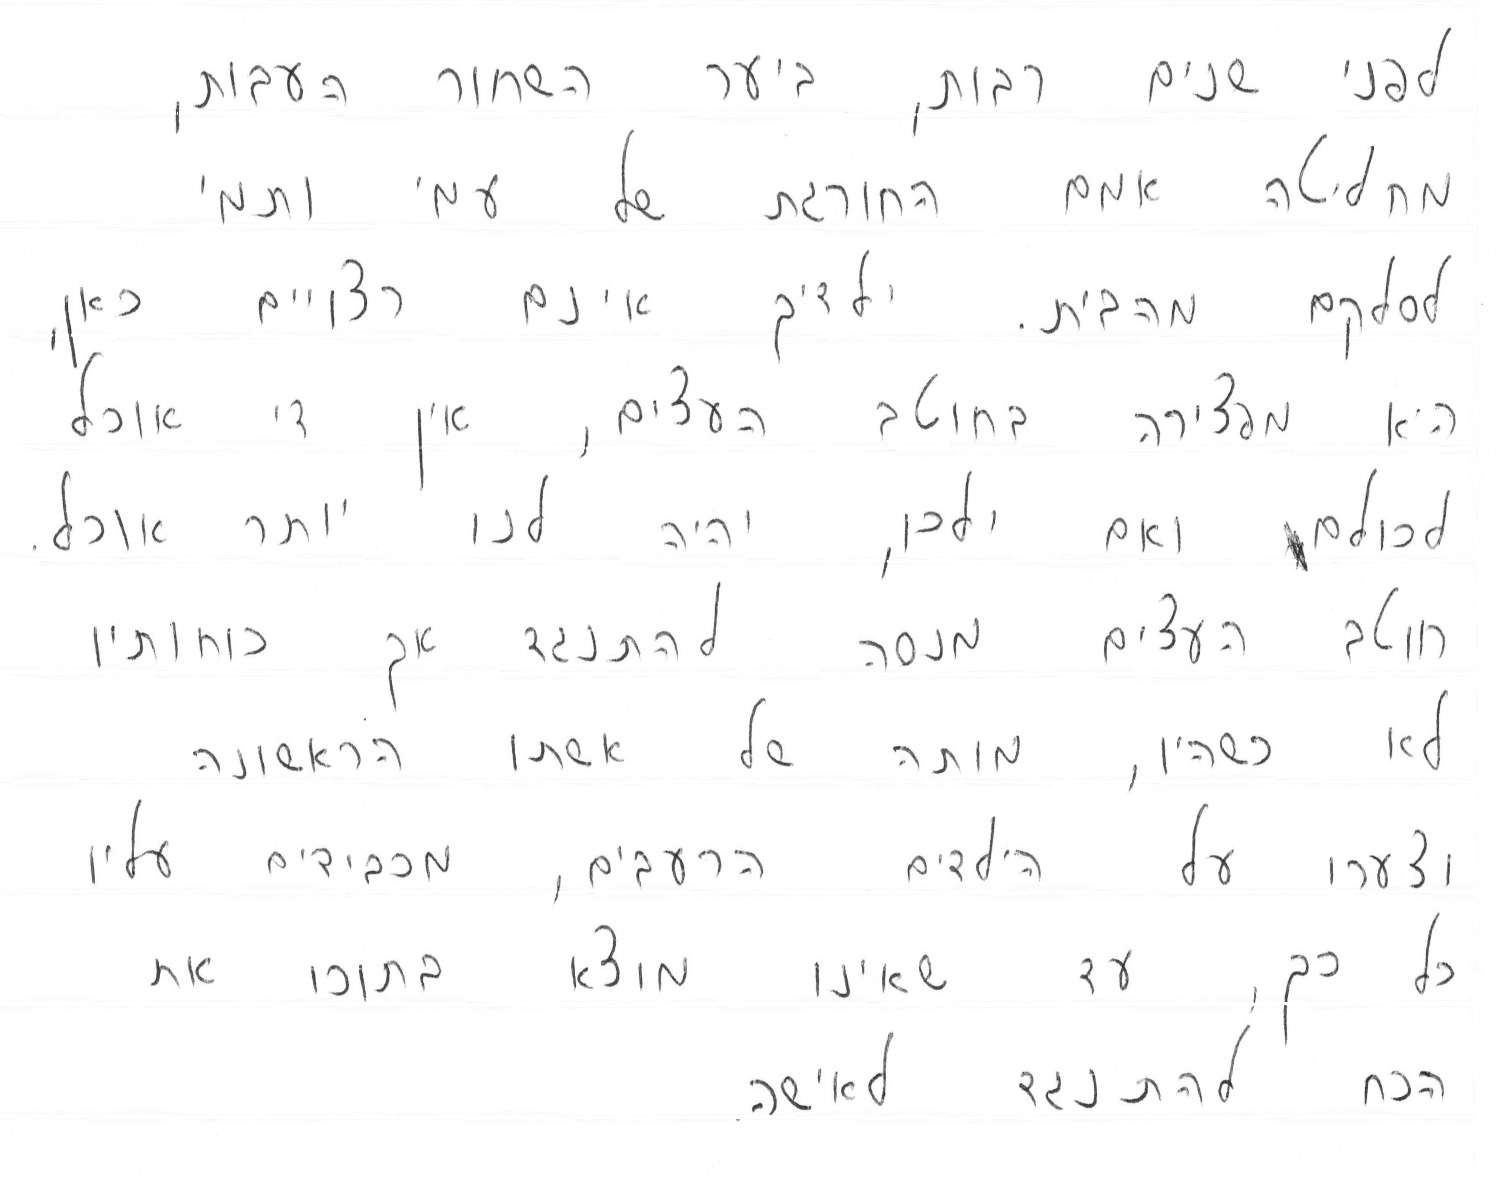 לפני שנים רבות, ביער השחור העבות,
מחליטה אמם החורגת של עמי ותמי
לסלקם מהבית. ילדיך אינם רצויים כאן,
היא מפצירה בחוטב העצים, אין די אוכל
לכולם ואם ילכו, יהיה לנו יותר אוכל.
חוטב העצים מנסה להתנגד אך כוחותיו
לא כשהיו, מותה של אשתו הראשונה
וצערו על הילדים הרעבים, מכבידים עליו
כל כך, עד שאינו מוצא בתוכו את
הכח להתנגד לאישה.